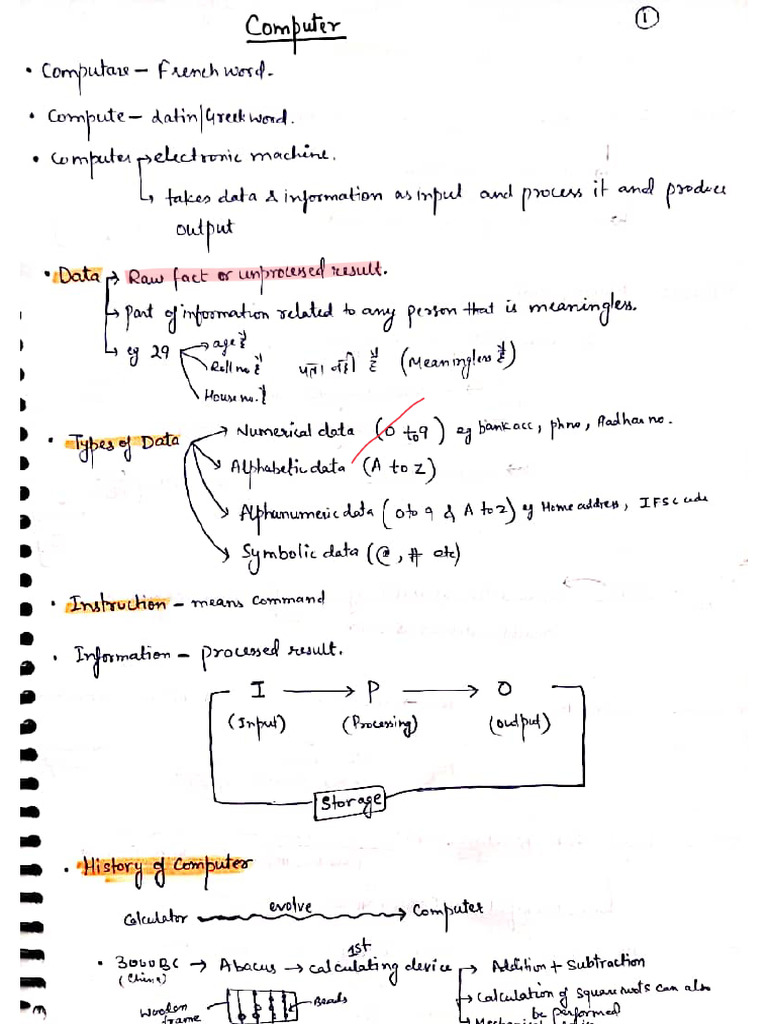 Computer
1
• Computare – French word.
• Compute – Latin/Greek word.
• Computer → electronic machine.
↳ takes data & information as input and process it and produce
output
• Data → Raw fact or unprocessed result.
→ part of information related to any person that is meaningless.
→ eg 29 → age है
→ Roll no. है पता नहीं है (Meaningless है)
→ House no. है
• Types of Data → Numerical data (0 to 9) eg bank acc, ph no, Aadhar no.
→ Alphabetic data (A to Z)
→ Alphanumeric data (0 to 9 & A to Z) eg Home address, IFSC code
→ Symbolic data (@, # etc)
• Instruction – means command
• Information – processed result.
I → P → O
(Input) (Processing) (Output)
Storage
• History of Computer
Calculator evolve → Computer
• 3000 BC → Abacus → 1st calculating device → Addition + Subtraction
(China) → Calculation of square roots can also
be performed
Wooden frame Beads